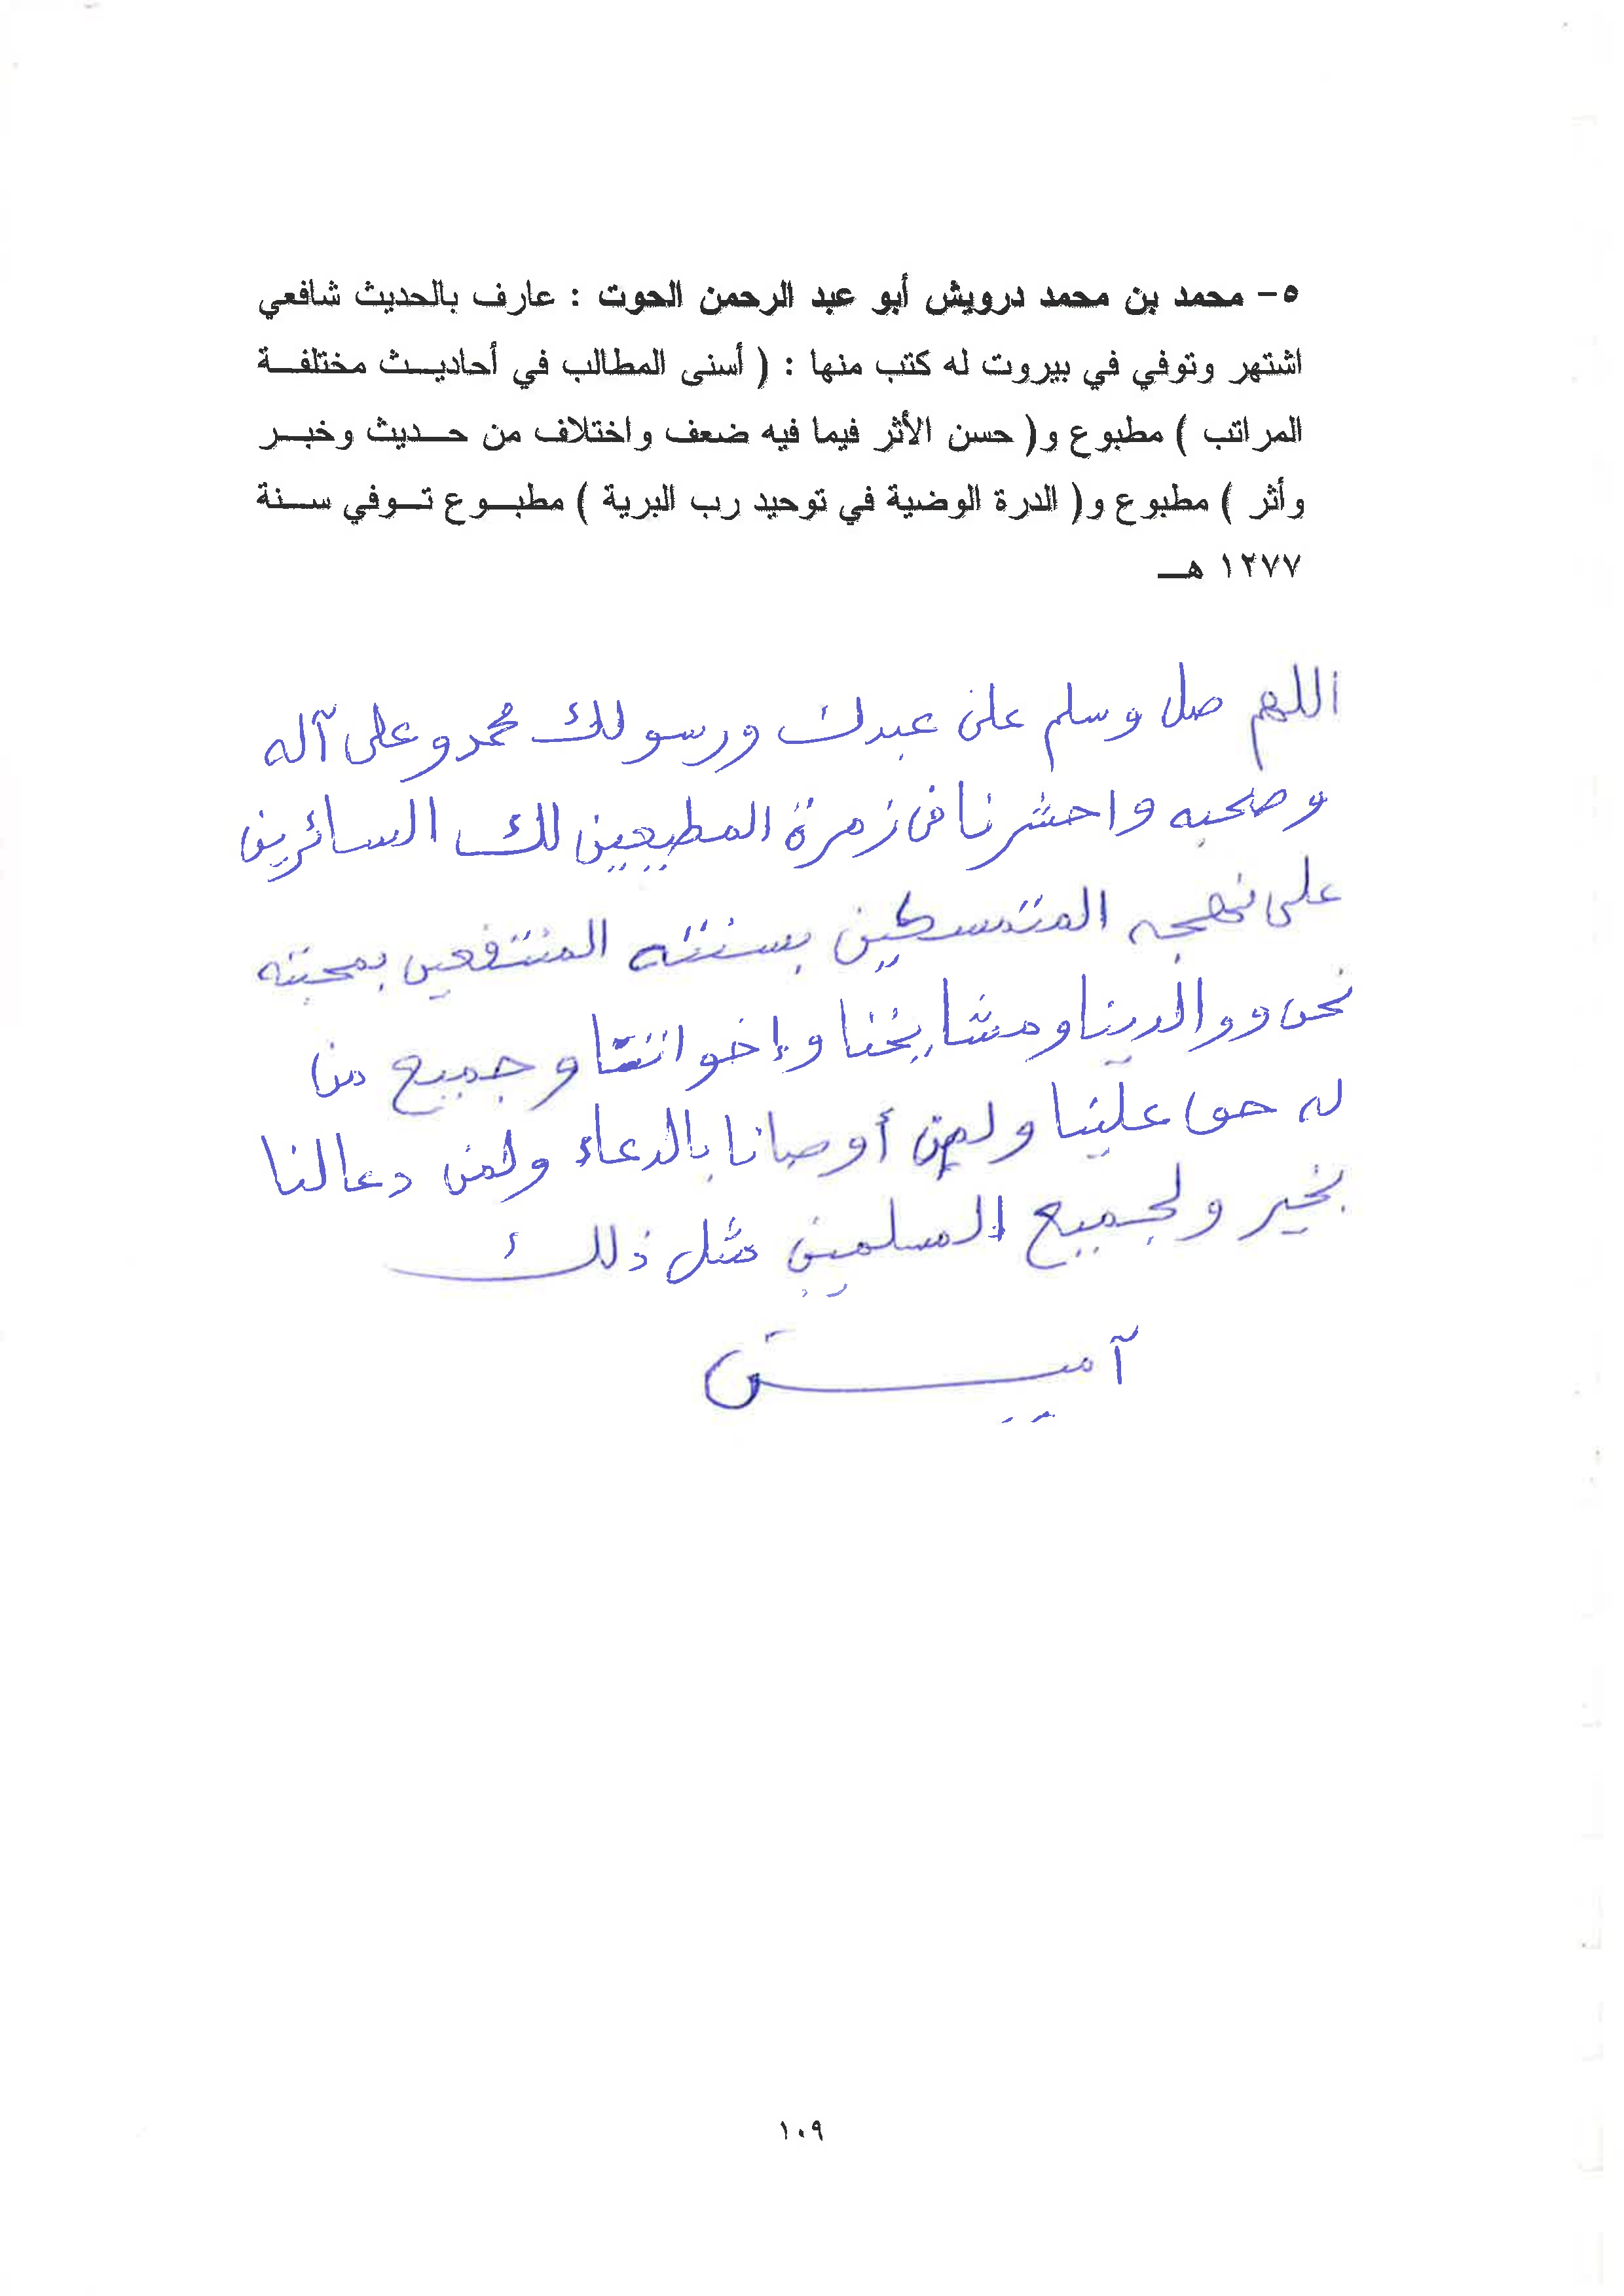 ٥- محمد بن محمد درويش أبو عبد الرحمن الحوت : عارف بالحديث شافعي
اشتهر وتوفي في بيروت له كتب منها : ( أسنى المطالب في أحاديث مختلفة
المراتب ) مطبوع و( حسن الأثر فيما فيه ضعف واختلاف من حديث وخبر
وأثر ) مطبوع و( الدرة الوضية في توحيد رب البرية ) مطبوع توفي سنة
١٢٧٧ هـ
اللهم صل وسلم على عبدك ورسولك محمد وعلى آله
وصحبه واحشرنا في زمرة المطيعين لك السائرين
على نهجه المتمسكين بسنته المنتفعين بمحبته
نحن ووالدينا ومشايخنا وإخواننا وجميع من
له حق علينا ولمن أوصانا بالدعاء ولمن دعا لنا
بخير ولجميع المسلمين مثل ذلك
آمين
١٠٩